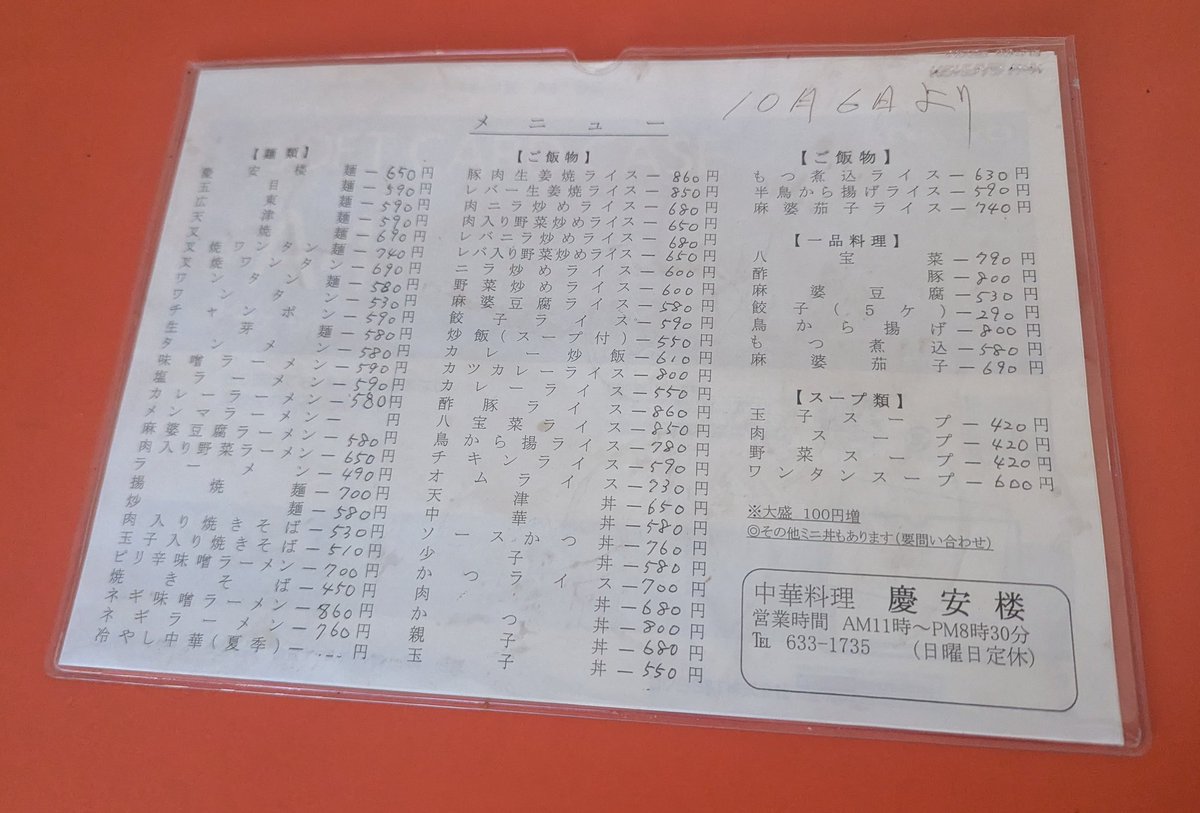 10月6日より
メニュー
【麺類】
慶安楼麺－650円
五目麺－590円
広東麺－590円
天津麺－590円
叉焼麺－690円
叉焼ワンタン麺－740円
叉焼ワンタン－690円
ワンタン麺－580円
ワンタン－530円
チャンポン－590円
生芽麺－580円
タンメン－580円
味噌ラーメン－590円
塩ラーメン－590円
カレーラーメン－580円
メンマラーメン－ 円
麻婆豆腐ラーメン－580円
肉入り野菜ラーメン－650円
ラーメン－490円
揚焼麺－700円
炒麺－580円
肉入り焼きそば－530円
玉子入り焼きそば－510円
ピリ辛味噌ラーメン－700円
焼きそば－450円
ネギ味噌ラーメン－860円
ネギラーメン－760円
冷やし中華(夏季)－....円
【ご飯物】
豚肉生姜焼ライス－860円
レバー生姜焼ライス－850円
肉ニラ炒めライス－680円
肉入り野菜炒めライス－650円
レバニラ炒めライス－680円
レバ入り野菜炒めライス－650円
ニラ炒めライス－600円
野菜炒めライス－600円
麻婆豆腐ライス－580円
餃子ライス－590円
炒飯(スープ付)－550円
カレー炒飯－610円
カツカレーライス－800円
カレーライス－550円
酢豚ライス－860円
八宝菜ライス－850円
鳥から揚ライス－780円
チキンライス－590円
オムライス－730円
天津丼－650円
中華丼－580円
ソースかつ丼－760円
少子丼－580円
かつライス－700円
肉丼－680円
かつ丼－800円
親子丼－680円
玉子丼－550円
【ご飯物】
もつ煮込ライス－630円
半鳥から揚げライス－590円
麻婆茄子ライス－740円
【一品料理】
八宝菜－790円
酢豚－800円
麻婆豆腐－530円
餃子(5ケ)－290円
鳥から揚げ－800円
もつ煮込－580円
麻婆茄子－690円
【スープ類】
玉子スープ－420円
肉スープ－420円
野菜スープ－420円
ワンタンスープ－600円
※大盛 100円増
◎その他ミニ丼もあります(要問い合わせ)
中華料理 慶安楼
営業時間 AM11時～PM8時30分
℡ 633-1735 (日曜日定休)